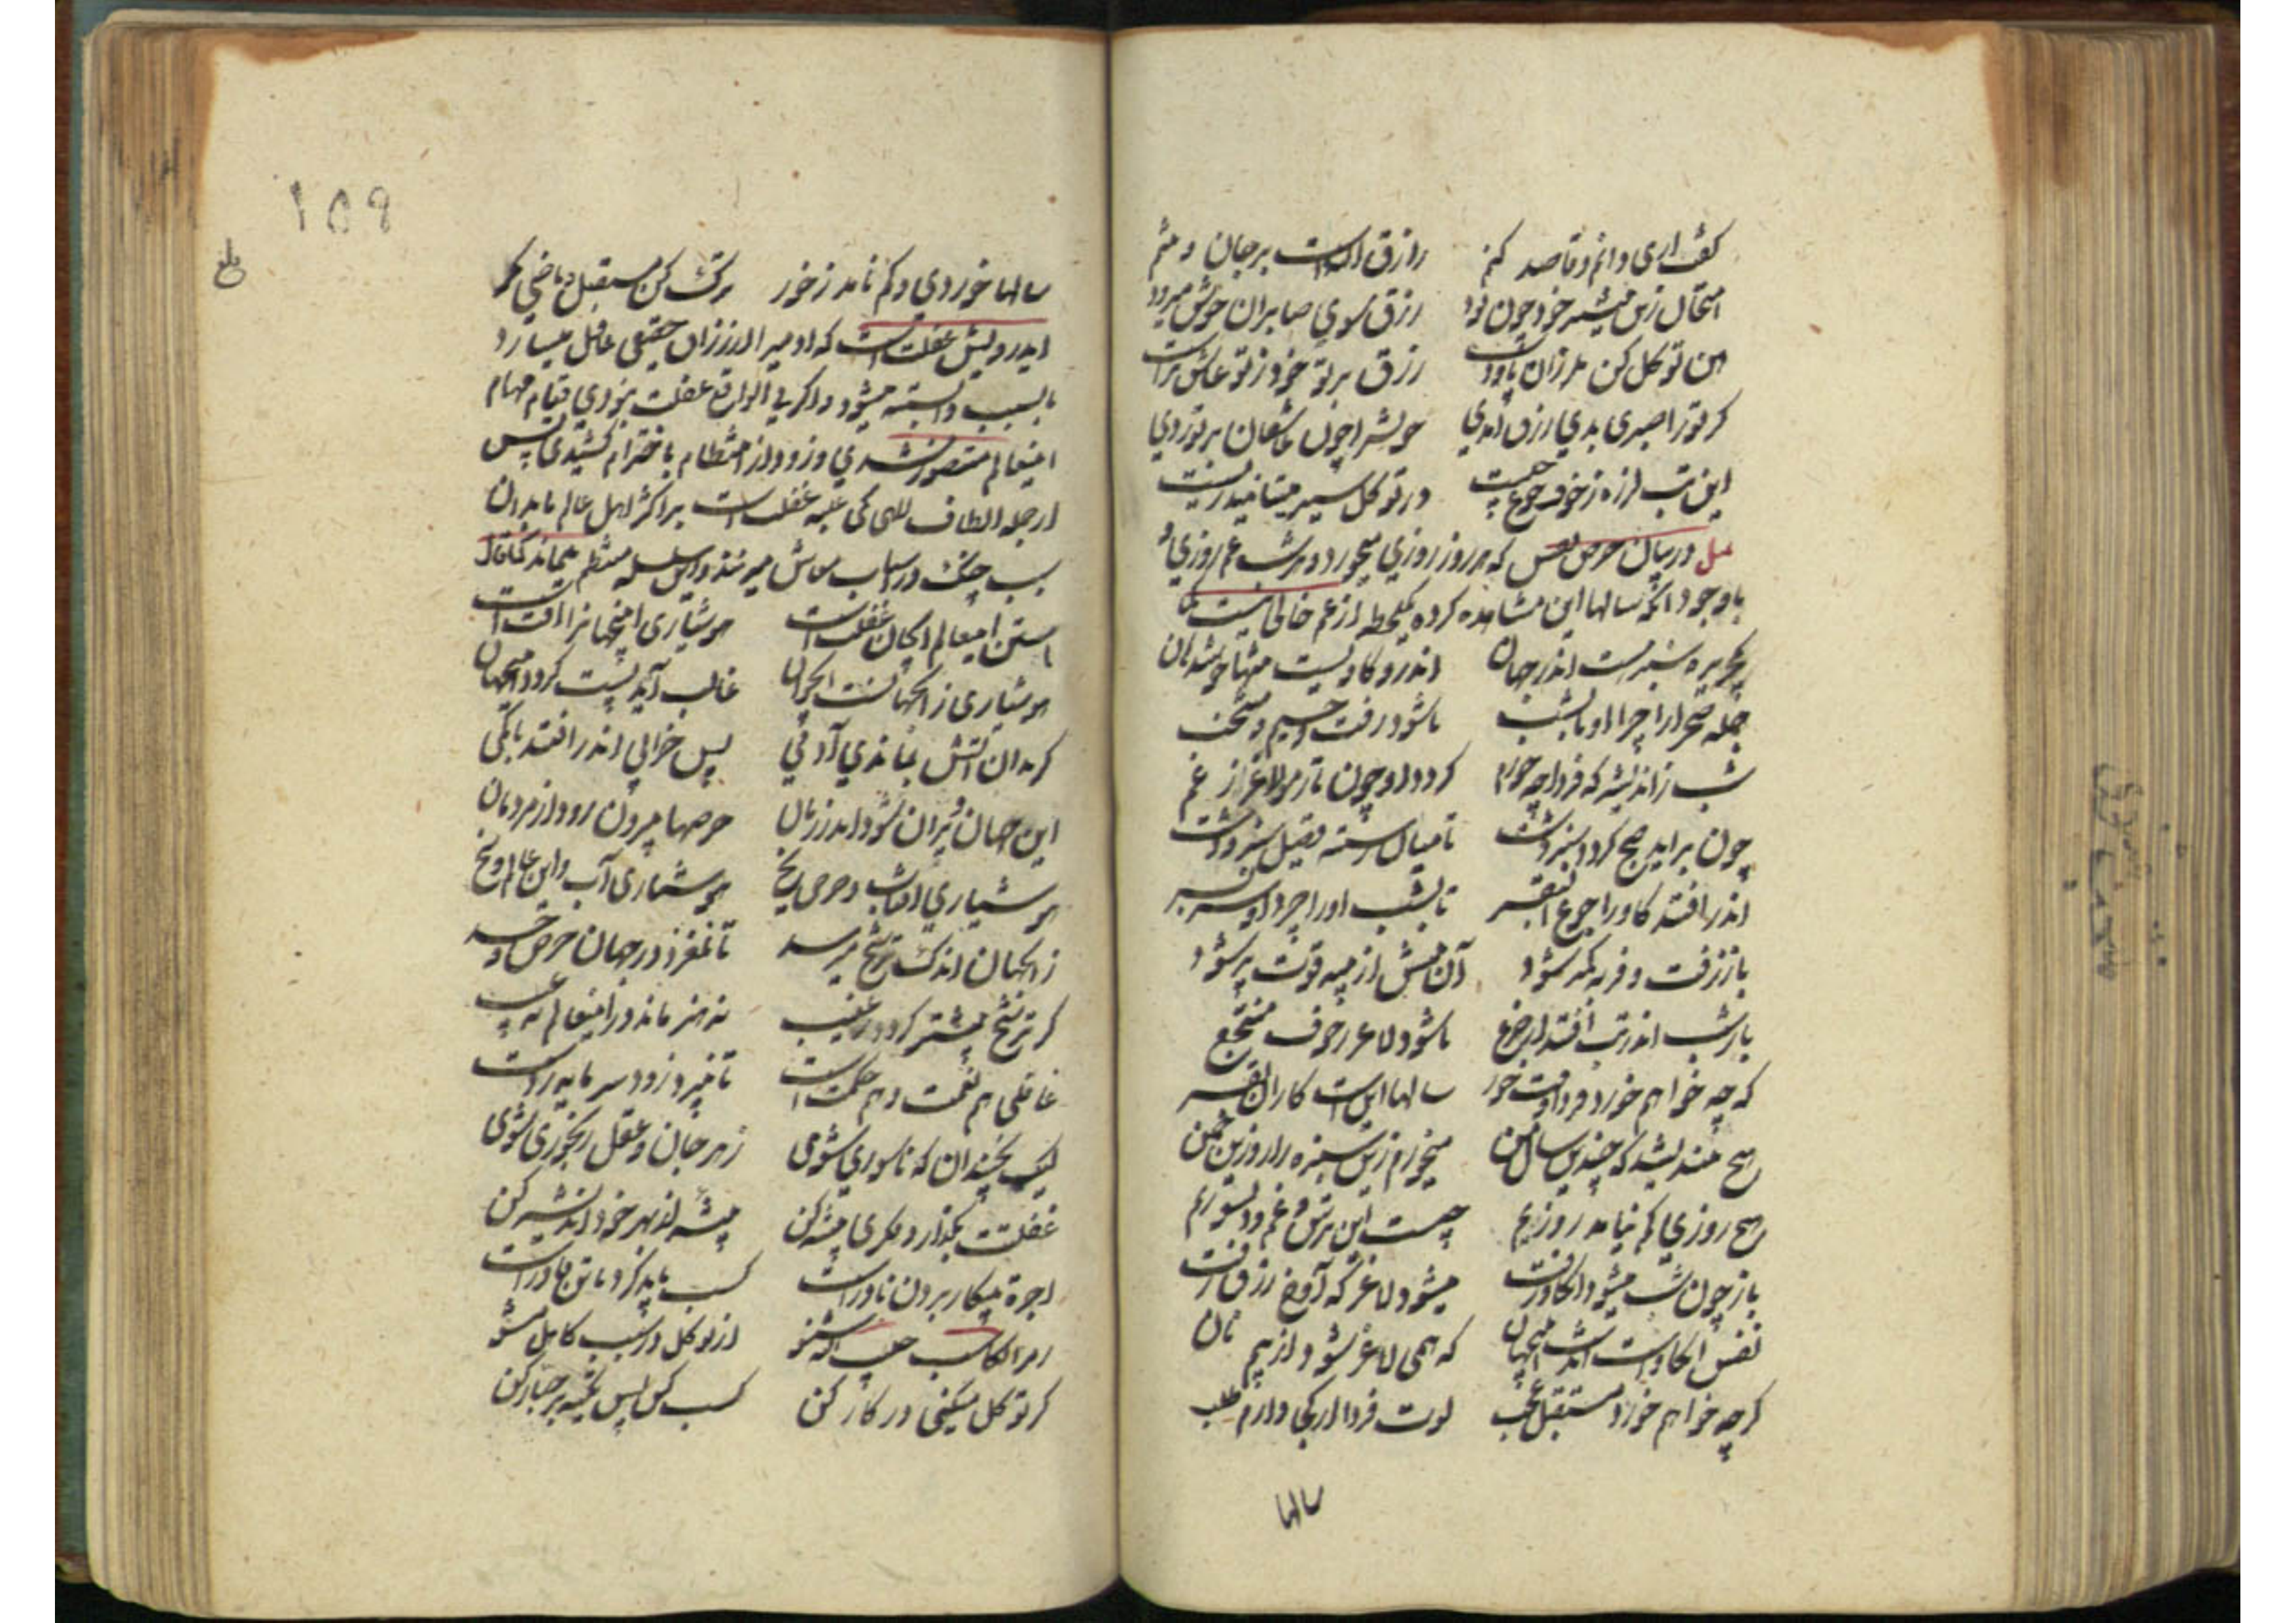 گفت آری دانم و قاصد کنم رازق الله است بر جان و منم
امتحان زین بیشتر خود چون بود رزق سوی صابران خوش میرود
هین توکل کن ملرزان پا و دست رزق تو بر تو ز تو عاشق‌تراست
گر ترا صبری بدی رزق آمدی خویش را چون عاشقان بر تو زدی
این تب لرزه ز خوف جوع چیست در توکل سیر میتانید زیست
مثل در بیان حرص نفس که هر روز روزی میخورد و هر شب غم روزی
با وجود آنکه سالها این مشاهده کرده یکلحظه از غم خالی نیست
یک جزیره سبز هست اندر جهان اندرو گاویست تنها خوش دهان
جمله صحرا را چرا او تا بشب تا شود زفت و جسیم و منتخب
شب ز اندیشه که فردا چه خورم گردد او چون تار مو لاغر ز غم
چون برآید صبح گردد سبز دشت تا میان رسته قصیل سبز و کشت
اندر افتد گاو را جوع البقر تا بشب او را چرد او سر بسر
باز زفت و فربه و لمتر شود آن تنش از پیه و قوت پر شود
باز شب اندر تب افتد از فزع تا شود لاغر ز خوف منتجع
که چه خواهم خورد فردا وقت خور سالها این است کار آن بقر
هیچ نندیشد که چندین سال من میخورم زین سبزه زار و زین چمن
هیچ روزی کم نیامد روزیم چیست این ترس و غم و دلسوزیم
باز چون شب میشود آن گاو زفت میشود لاغر که آوخ رزق رفت
نفس آن گاو است و آن دشت اینجهان که همی لاغر شود از بیم نان
که چه خواهم خورد مستقبل عجب لوت فردا از کجا دارم طلب
سالها
۱۵۹
بلغ
سالها خوردی و کم نامد ز خور ترک مستقبل کن و ماضی نگر
ایدرویش غفلت است که آدمی را از رزاق حقیقی غافل میسازد
باسباب وابسته میشود و اگر فی الواقع غفلت نبودی قیام مهام
اینعالم متصور نشدی و زود از انتظام باخترام کشیدی پس
از جمله الطاف الهی یکی غلبه غفلت است بر اکثر اهل عالم تا بدان
سبب چنگ در اسباب معاش میزنند و این سلسله منتظم میماند کما قال
استن اینعالم ایجان غفلت است هوشیاری اینجهانرا آفت است
هوشیاری ز آنجهانست و چو آن غالب آید پست گردد اینجهان
این جهان ویران شود اندر زمان حرصها بیرون رود از مردمان
هوشیاری آفتاب و حرص یخ هوشیاری آب و این عالم وسخ
ز آنجهان اندک ترشح میرسد تا نغرد در جهان حرص و حسد
گر ترشح بیشتر گردد ز غیب نه هنر ماند در اینعالم نه عیب
غافلی هم نعمت و هم حکمت است
غفلت بگذار و فکری پیشه کن پیشه از بهر خود اندیشه کن
رمز الکاسب حبیب الله شنو از توکل در سبب کاهل مشو
گر توکل میکنی در کار کن کسب کن پس تکیه بر جبار کن